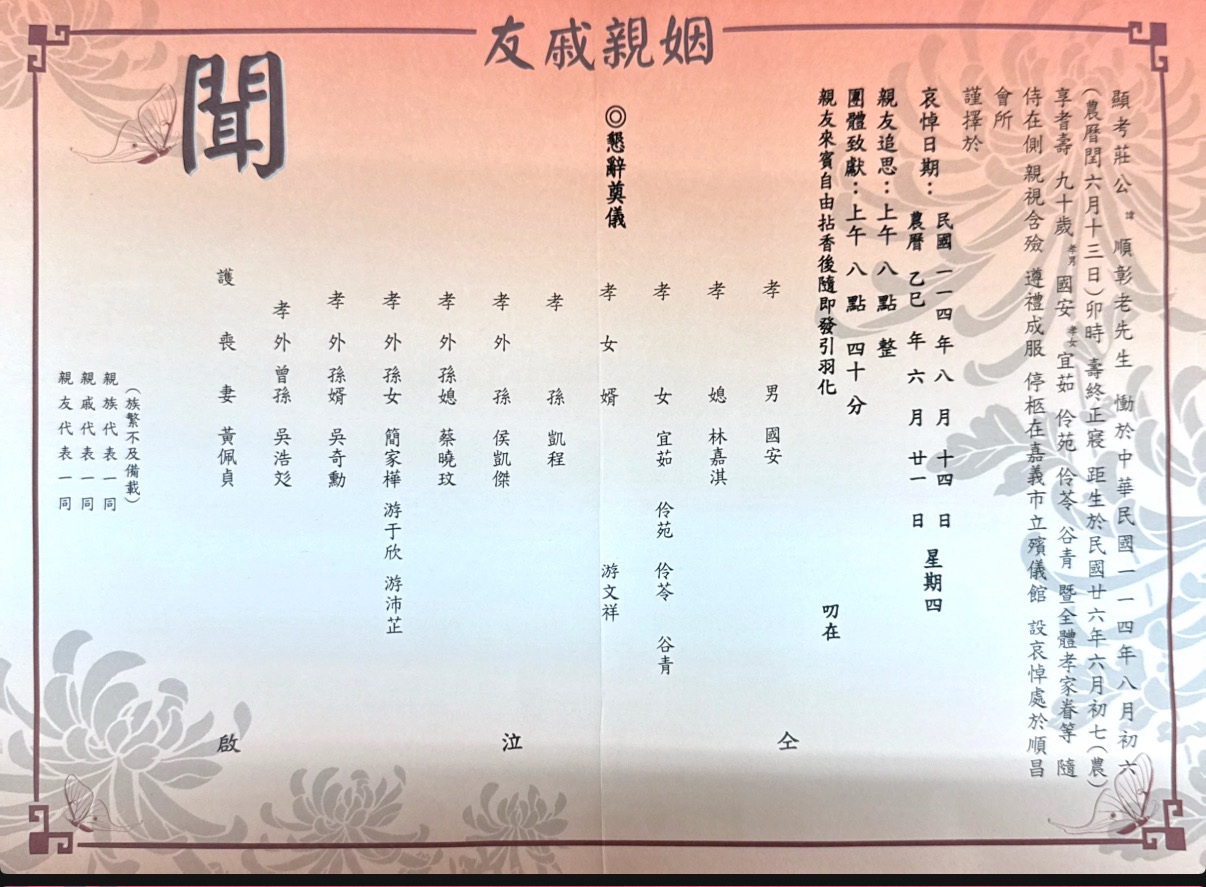 顯考莊公 諱 順彰老先生 慟於中華民國一一四年八月初六
(農曆閏六月十三日)卯時 壽終正寢 距生於民國廿六年六月初七(農)
享耆壽 九十歲 孝男 國安 孝女 宜茹 伶苑 伶苓 谷青 暨全體孝家眷等 隨
侍在側 親視含殮 遵禮成服 停柩在嘉義市立殯儀館 設哀悼處於順昌
會所
謹擇於
哀悼日期:
民國 一一四年 八 月 十四 日
農曆 乙巳 年 六 月 廿一 日
星期四
親友追思:上午 八 點 整
團體致獻:上午 八 點 四十 分
親友來賓自由拈香後隨即發引羽化
叨在
姻親戚友
◎懇辭奠儀
孝男 國安
孝媳 林嘉淇
孝女 宜茹 伶苑 伶苓 谷青
孝女婿 游文祥
孝孫 凱程
孝外孫 侯凱傑
孝外孫媳 蔡曉玟
孝外孫女 簡家樺 游于欣 游沛芷
孝外孫婿 吳奇勳
孝外曾孫 吳浩
護喪妻 黃佩貞
仝 泣 啟
聞
(族繁不及備載)
親族代表一同
親戚代表一同
親友代表一同